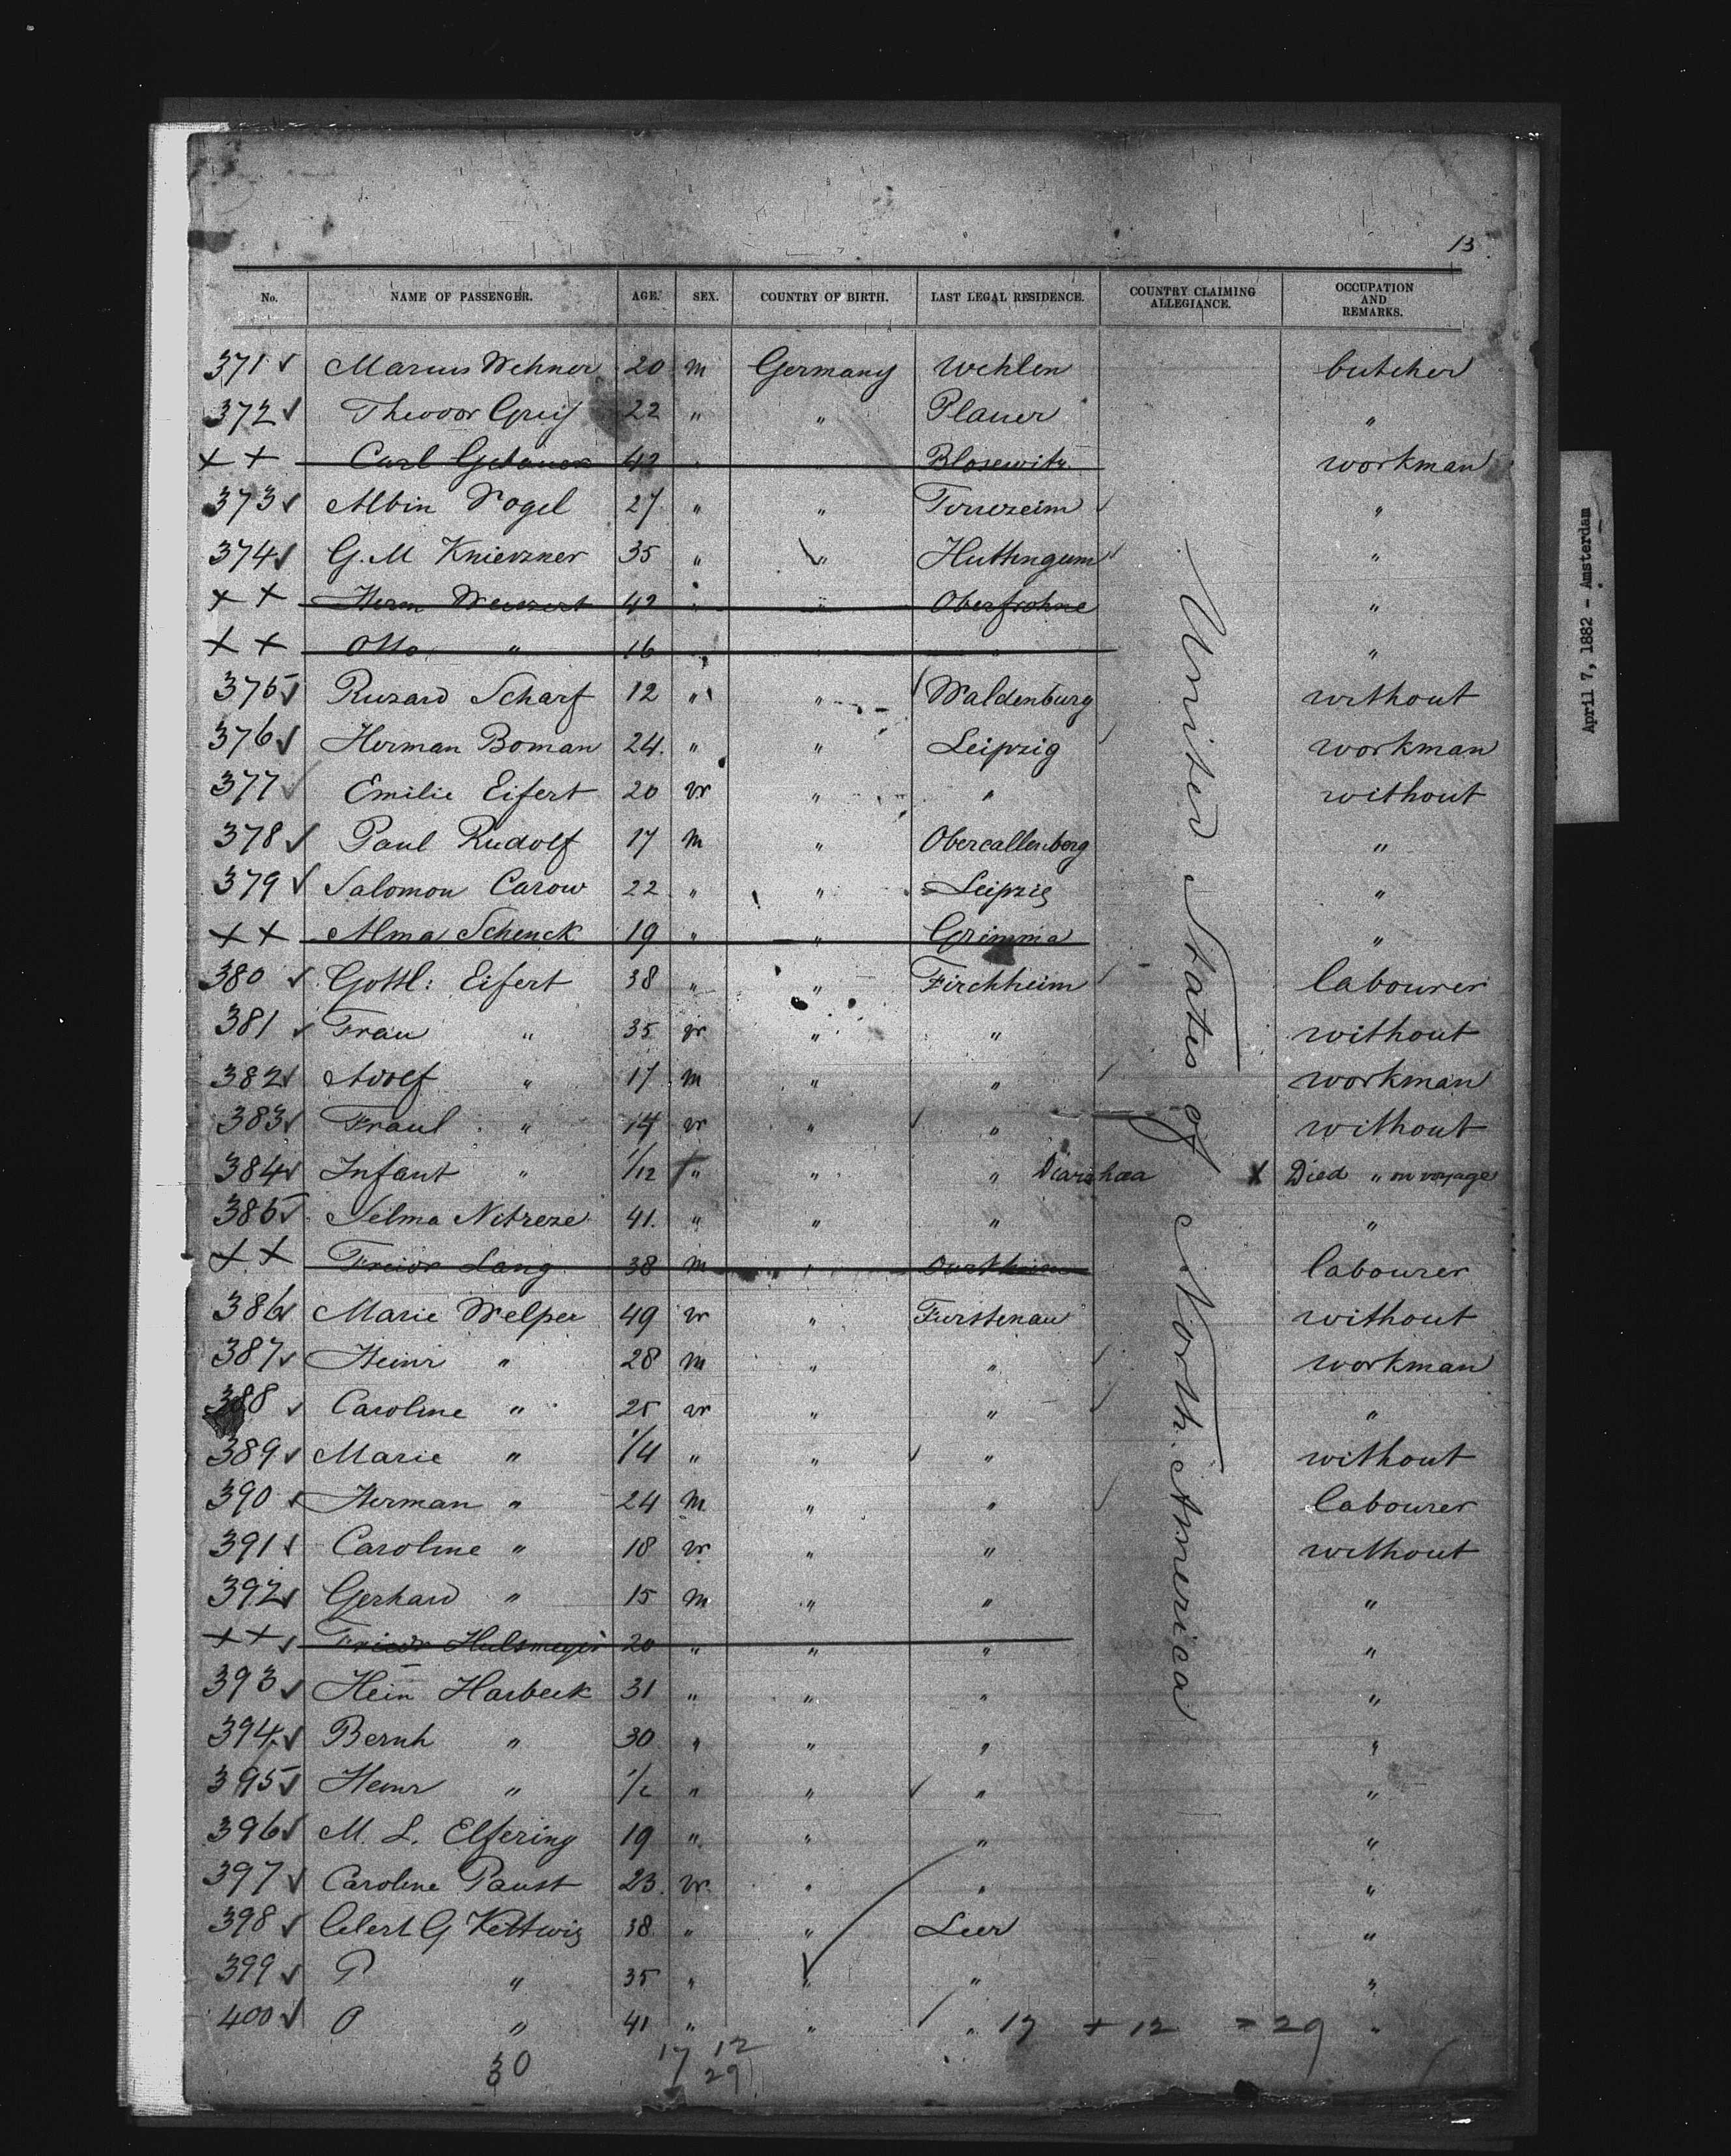 13.
No. NAME OF PASSENGER. AGE. SEX. COUNTRY OF BIRTH. LAST LEGAL RESIDENCE. COUNTRY CLAIMING ALLEGIANCE. OCCUPATION AND REMARKS.
371 Marius Wehner 20 m Germany Wehlen butcher
372 Theodor 22 " " Plauer "
++ Carl 42 " Blosewitz workman
373 Albin Vogel 27 " " "
374 G. M 35 " " "
++ Herm 42 " " Oberfrohne "
++ Otto " 16 " " " "
375 Scharf 12 " " Waldenburg without
376 Herman Boman 24. " " Leipzig workman
377 Emilie Eifert 20 vr " " without
378 Paul Rudolf 17 m " Obercallenberg "
379 Salomon Carow 22 " " Leipzig "
++ Alma Schenck 19 " " Grimma "
380 Gottl: Eifert 38 " " Firchheim labourer
381 Frau " 35 vr " " without
382 Adolf " 17 m " " workman
383 Fraul " 14 vr " " without
384 Infant " 1/12 " " " Diarrhoea X Died " on voyage
385 Selma 41. " " " "
++ Lang 38 m " labourer
386 Marie Welper 49 vr " Furstenau without
387 Heinr " 28 m " " workman
388 Caroline " 25 vr " " "
389 Marie " 1/4 " " " without
390 Herman " 24 m " " labourer
391 Caroline " 18 vr " " without
392 Gerhard " 15 m " " "
++ Friedr Hulsmeyer 20 " " " "
393 Hein Harbeck 31 " " " "
394 Bernh " 30 " " " "
395 Heinr " " " " "
396 M. L. Elfering 19 " " " "
397 Caroline Paust 23. vr " " "
398 G Kettwig 38 " " Leer "
399 P " 35 " " " "
400 " 41 " " " 17 + 12 = 29 "
30 17 12
29
United States of North. America
April 7, 1882 - Amsterdam